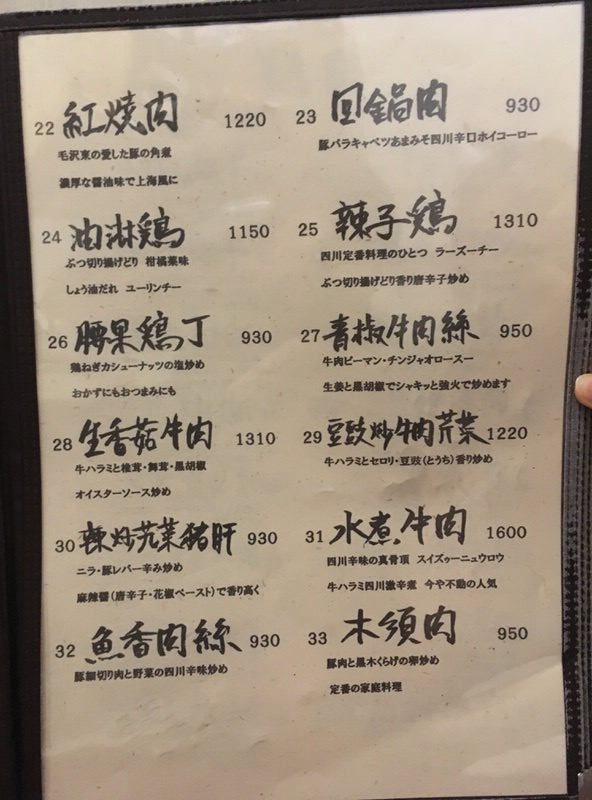 22 紅焼肉 1220
毛沢東の愛した豚の角煮
濃厚な醤油味で上海風に
23 回鍋肉 930
豚バラキャベツあまみそ四川辛口ホイコーロー
24 油淋鶏 1150
ぶつ切り揚げどり 柑橘葉味
しょう油だれ ユーリンチー
25 辣子鶏 1310
四川定番料理のひとつ ラーズーチー
ぶつ切り揚げどり香り唐辛子炒め
26 腰果鶏丁 930
鶏ねぎカシューナッツの塩炒め
おかずにもおつまみにも
27 青椒牛肉絲 950
牛肉ピーマン・チンジャオロースー
生姜と黒胡椒でシャキッと強火で炒めます
28 生香菇牛肉 1310
牛ハラミと椎茸・舞茸・黒胡椒
オイスターソース炒め
29 豆豉炒牛肉芹菜 1220
牛ハラミとセロリ・豆豉(とうち)香り炒め
30 辣炒芤菜猪肝 930
ニラ・豚レバー辛み炒め
麻辣醤(唐辛子・花椒ペースト)で香り高く
31 水煮牛肉 1600
四川辛味の真骨頂 スイズゥーニュウロウ
牛ハラミ四川激辛煮 今や不動の人気
32 魚香肉絲 930
豚細切り肉と野菜の四川辛味炒め
33 木須肉 950
豚肉と黒木くらげの卵炒め
定番の家庭料理